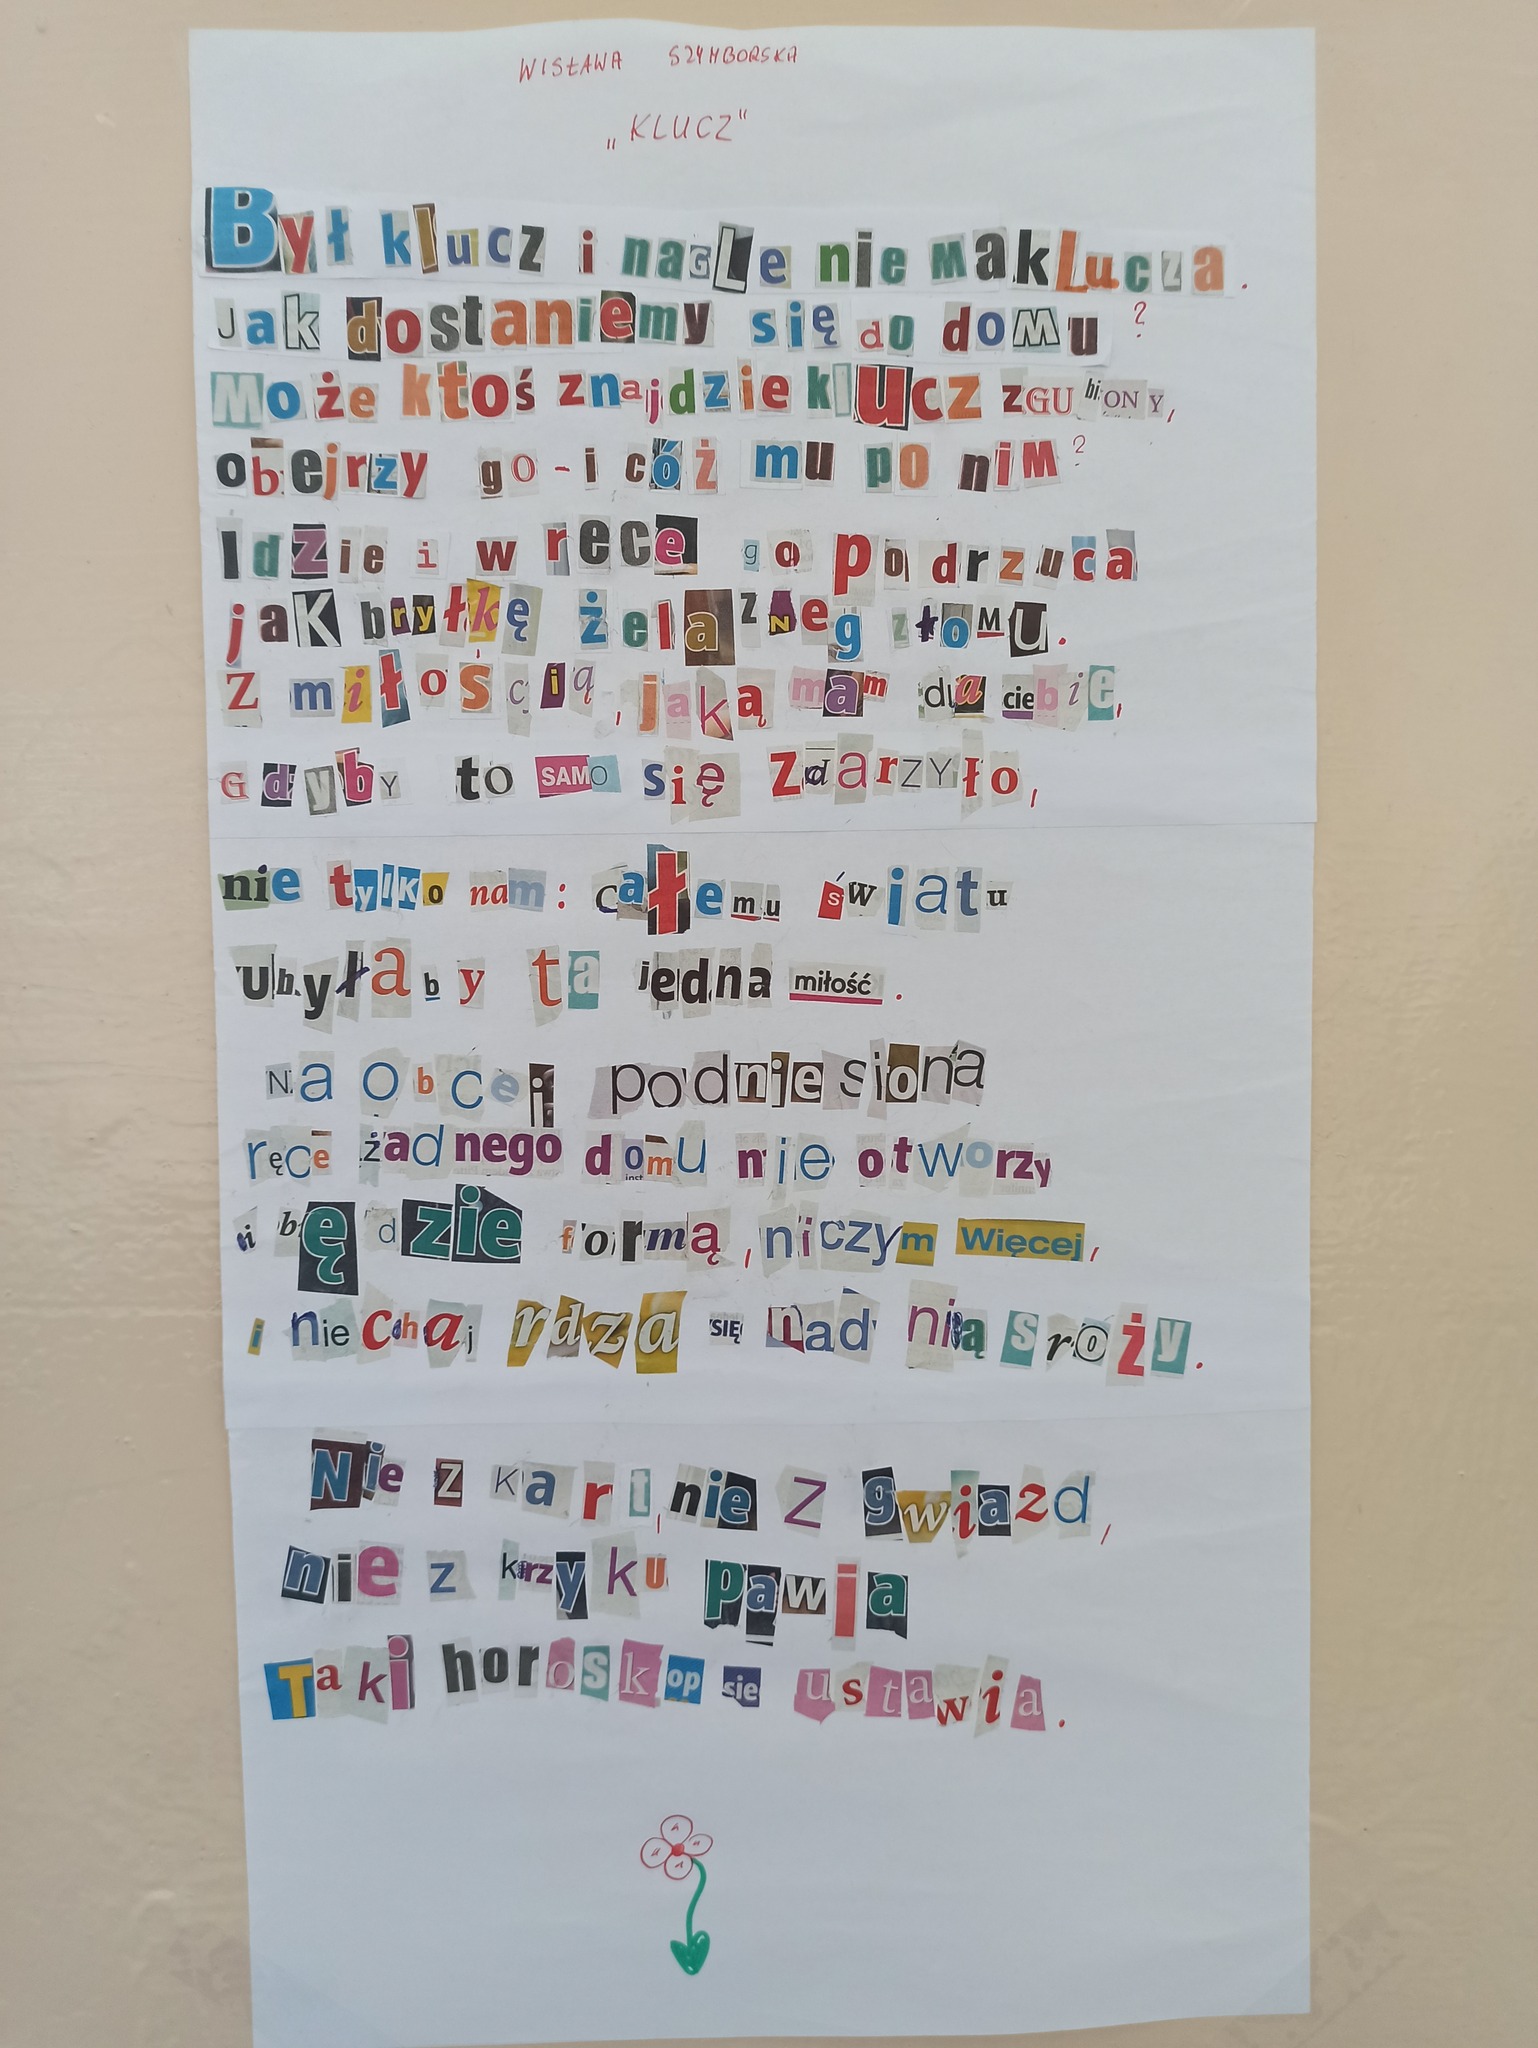 WISŁAWA SZYMBORSKA
„KLUCZ"
Był klucz i nagLe nie ma kLucza.
Jak dostaniemy się do domu?
Może ktoś znajdzie klucz zGUbiONY,
obejrzy go - i cóż mu po niM?
Idzie i w rece go podrzuca
jaK bryłkę żelazNeg złoMu.
Z miłością, jaką mam dla ciebie,
GdybY to SAMO się zdarzYło,
nie tylko nam: całemu światu
Ubyłaby ta jedna miłość.
Na obcej podniesiona
ręce żadnego domU nie otworzy
i będzie formą, niczym Więcej,
i niechaj rdza SIĘ nad nią sroży.
Nie z kart, nie z gwiazd,
nie z krzyku pawia
Taki horoskop sie ustawia.